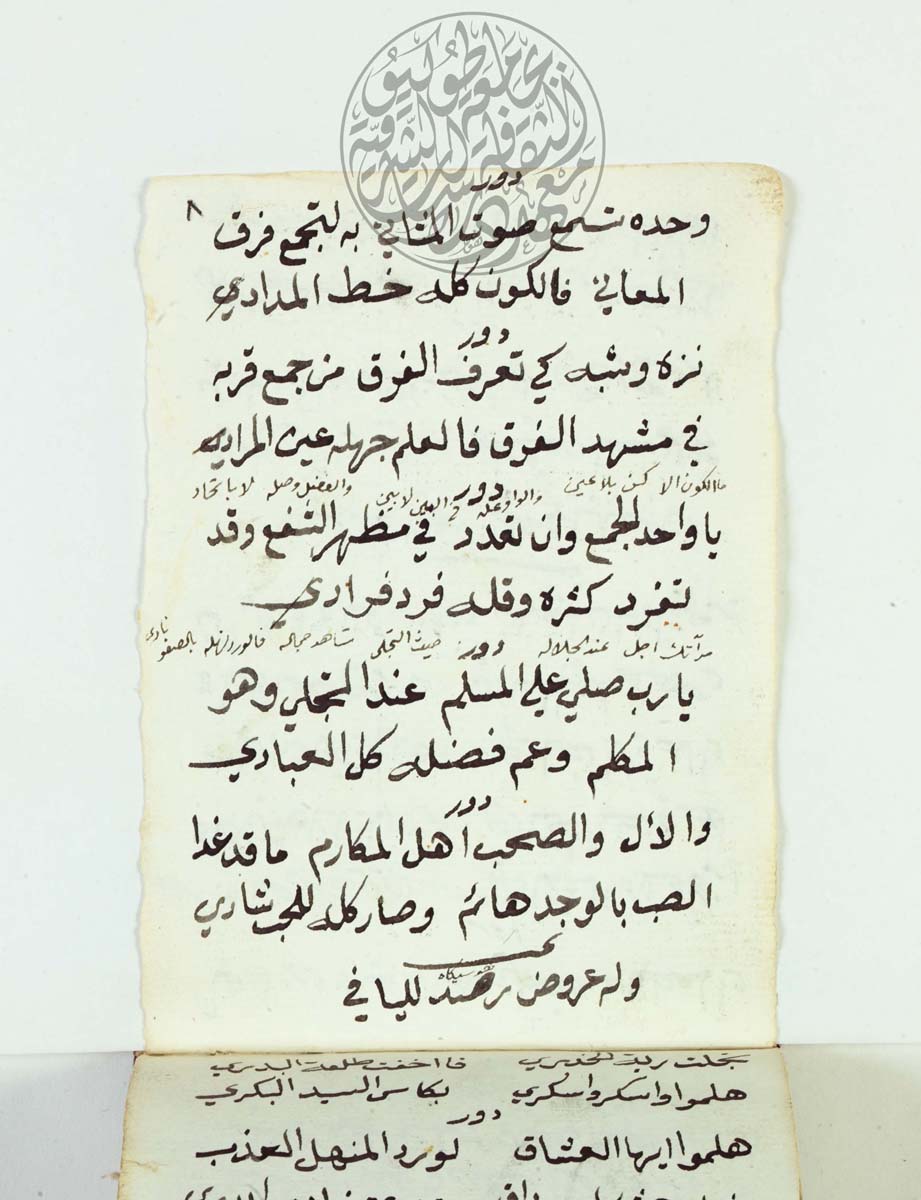 دور
٨
وحده تسمع صوت المثاني به لتجمع فرق
المعاني فالكون كله خط المدادي
دور
نزه وشبه كي تعرف الفرق من جمع قربه
في مشهد الفرق فالعلم جهله عين المرادي
ماالكون الا كن بلاعين والواو عله في العين لابين والفضل وصله لاباتحاد
دور
ياواحد الجمع وان تعدد في مظهر الشفع وقد
تفرد كثره وقله فرد فرادي
مرآتك اجل عند الجلاله حيث التجلى شاهد جماله فالورد نهله بالصفو
دور
يارب صلي علي المسلم عند التجلي وهو
المكلم وعم فضله كل العبادي
دور
والال والصحب اهل المكارم ما قد غدا
الصب بالوجد هائم وصار كله للحب شادي
وله عروض لليافي
تجلت فااخفت طلعة البدري
هلموا واسكر واسكري بكاس السيد البكري
دور
هلموا ايها العشاق لورد المنهل العذب